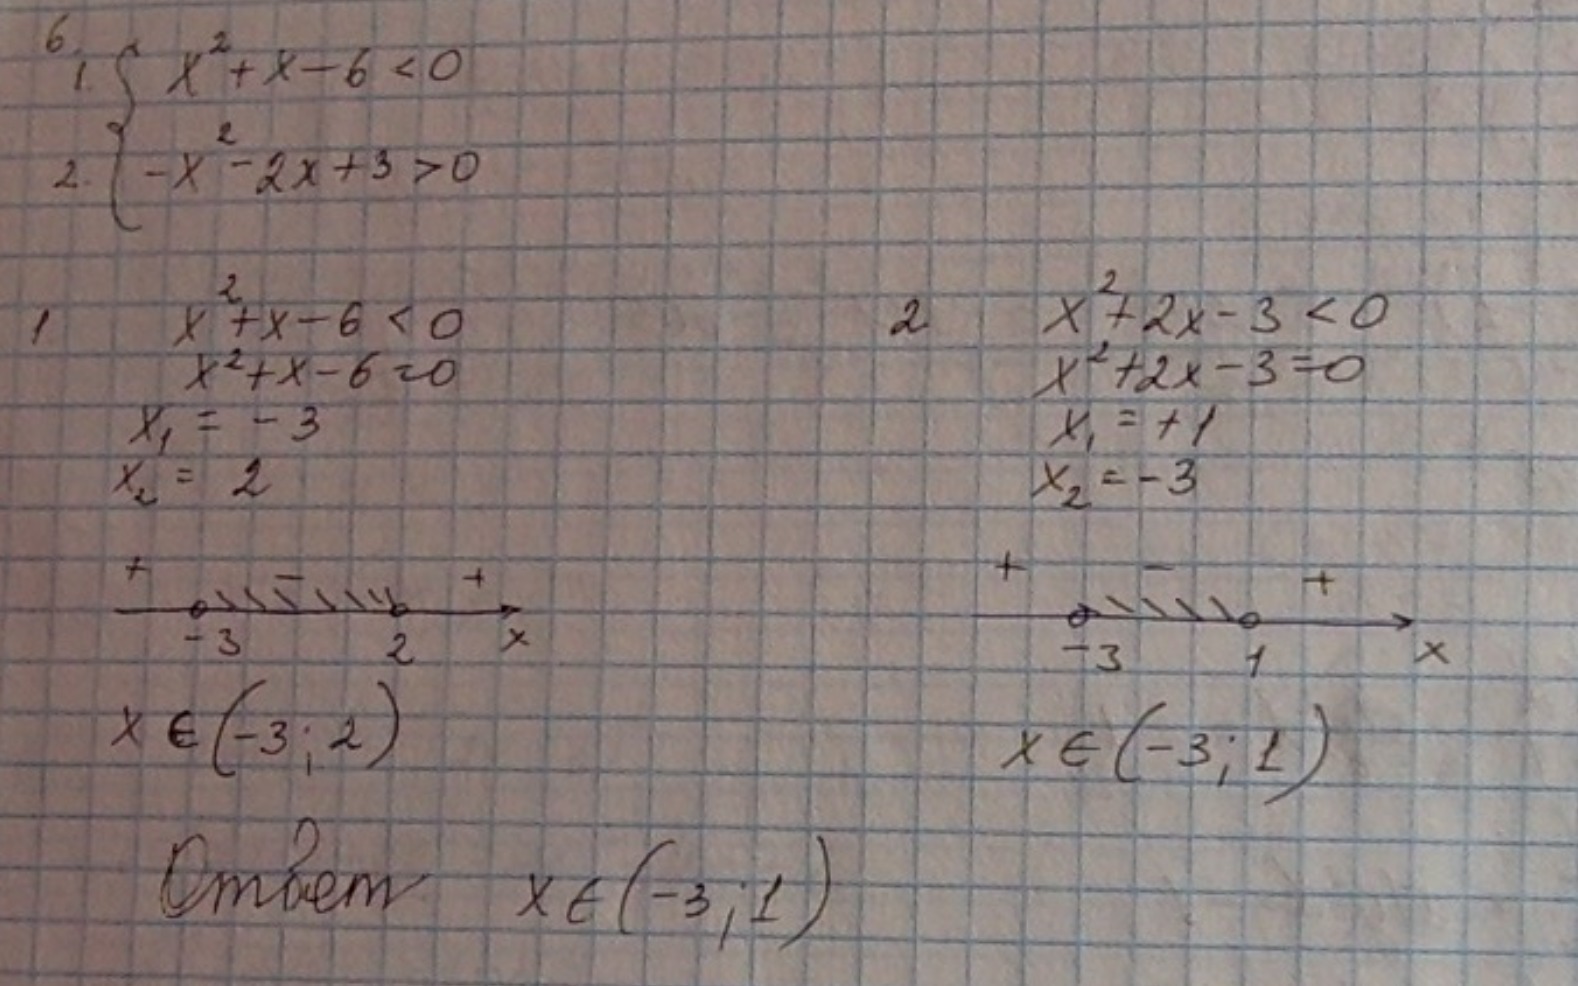 6.
1. { x² + x - 6 < 0
2. { -x² - 2x + 3 > 0
1 x² + x - 6 < 0
x² + x - 6 = 0
x₁ = -3
x₂ = 2
+ - +
-3 2 x
x ∈ (-3; 2)
2 x² + 2x - 3 < 0
x² + 2x - 3 = 0
x₁ = +1
x₂ = -3
+ - +
-3 1 x
x ∈ (-3; 1)
Ответ x ∈ (-3; 1)